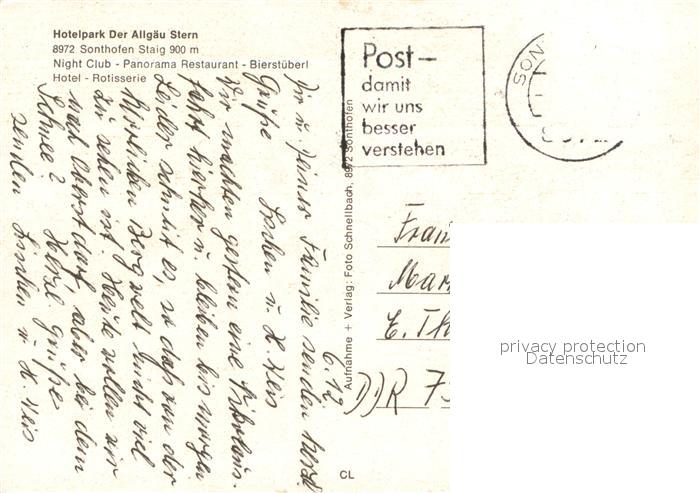 Hotelpark Der Allgäu Stern
8972 Sonthofen Staig 900 m
Night Club - Panorama Restaurant - Bierstüberl
Hotel - Rotisserie
Post-
damit
wir uns
besser
verstehen
SON
6.12.
Dir u. Deiner Familie senden herzl.
Grüße Lischen u. H. Weis
Wir machten gestern eine Nikolaus-
fahrt hierher u. bleiben bis morgen
Leider schneit es, so daß von der
herrlichen Bergwelt nicht viel
zu sehen ist. Heute wollen wir
nach Oberstdorf, aber bei dem
Schnee? Herzl. Grüße
senden Lischen u. H. Weis
Aufnahme + Verlag: Foto Schnellbach, 8972 Sonthofen
Frau
Mar
E. Th
DDR 75
CL
privacy protection
Datenschutz